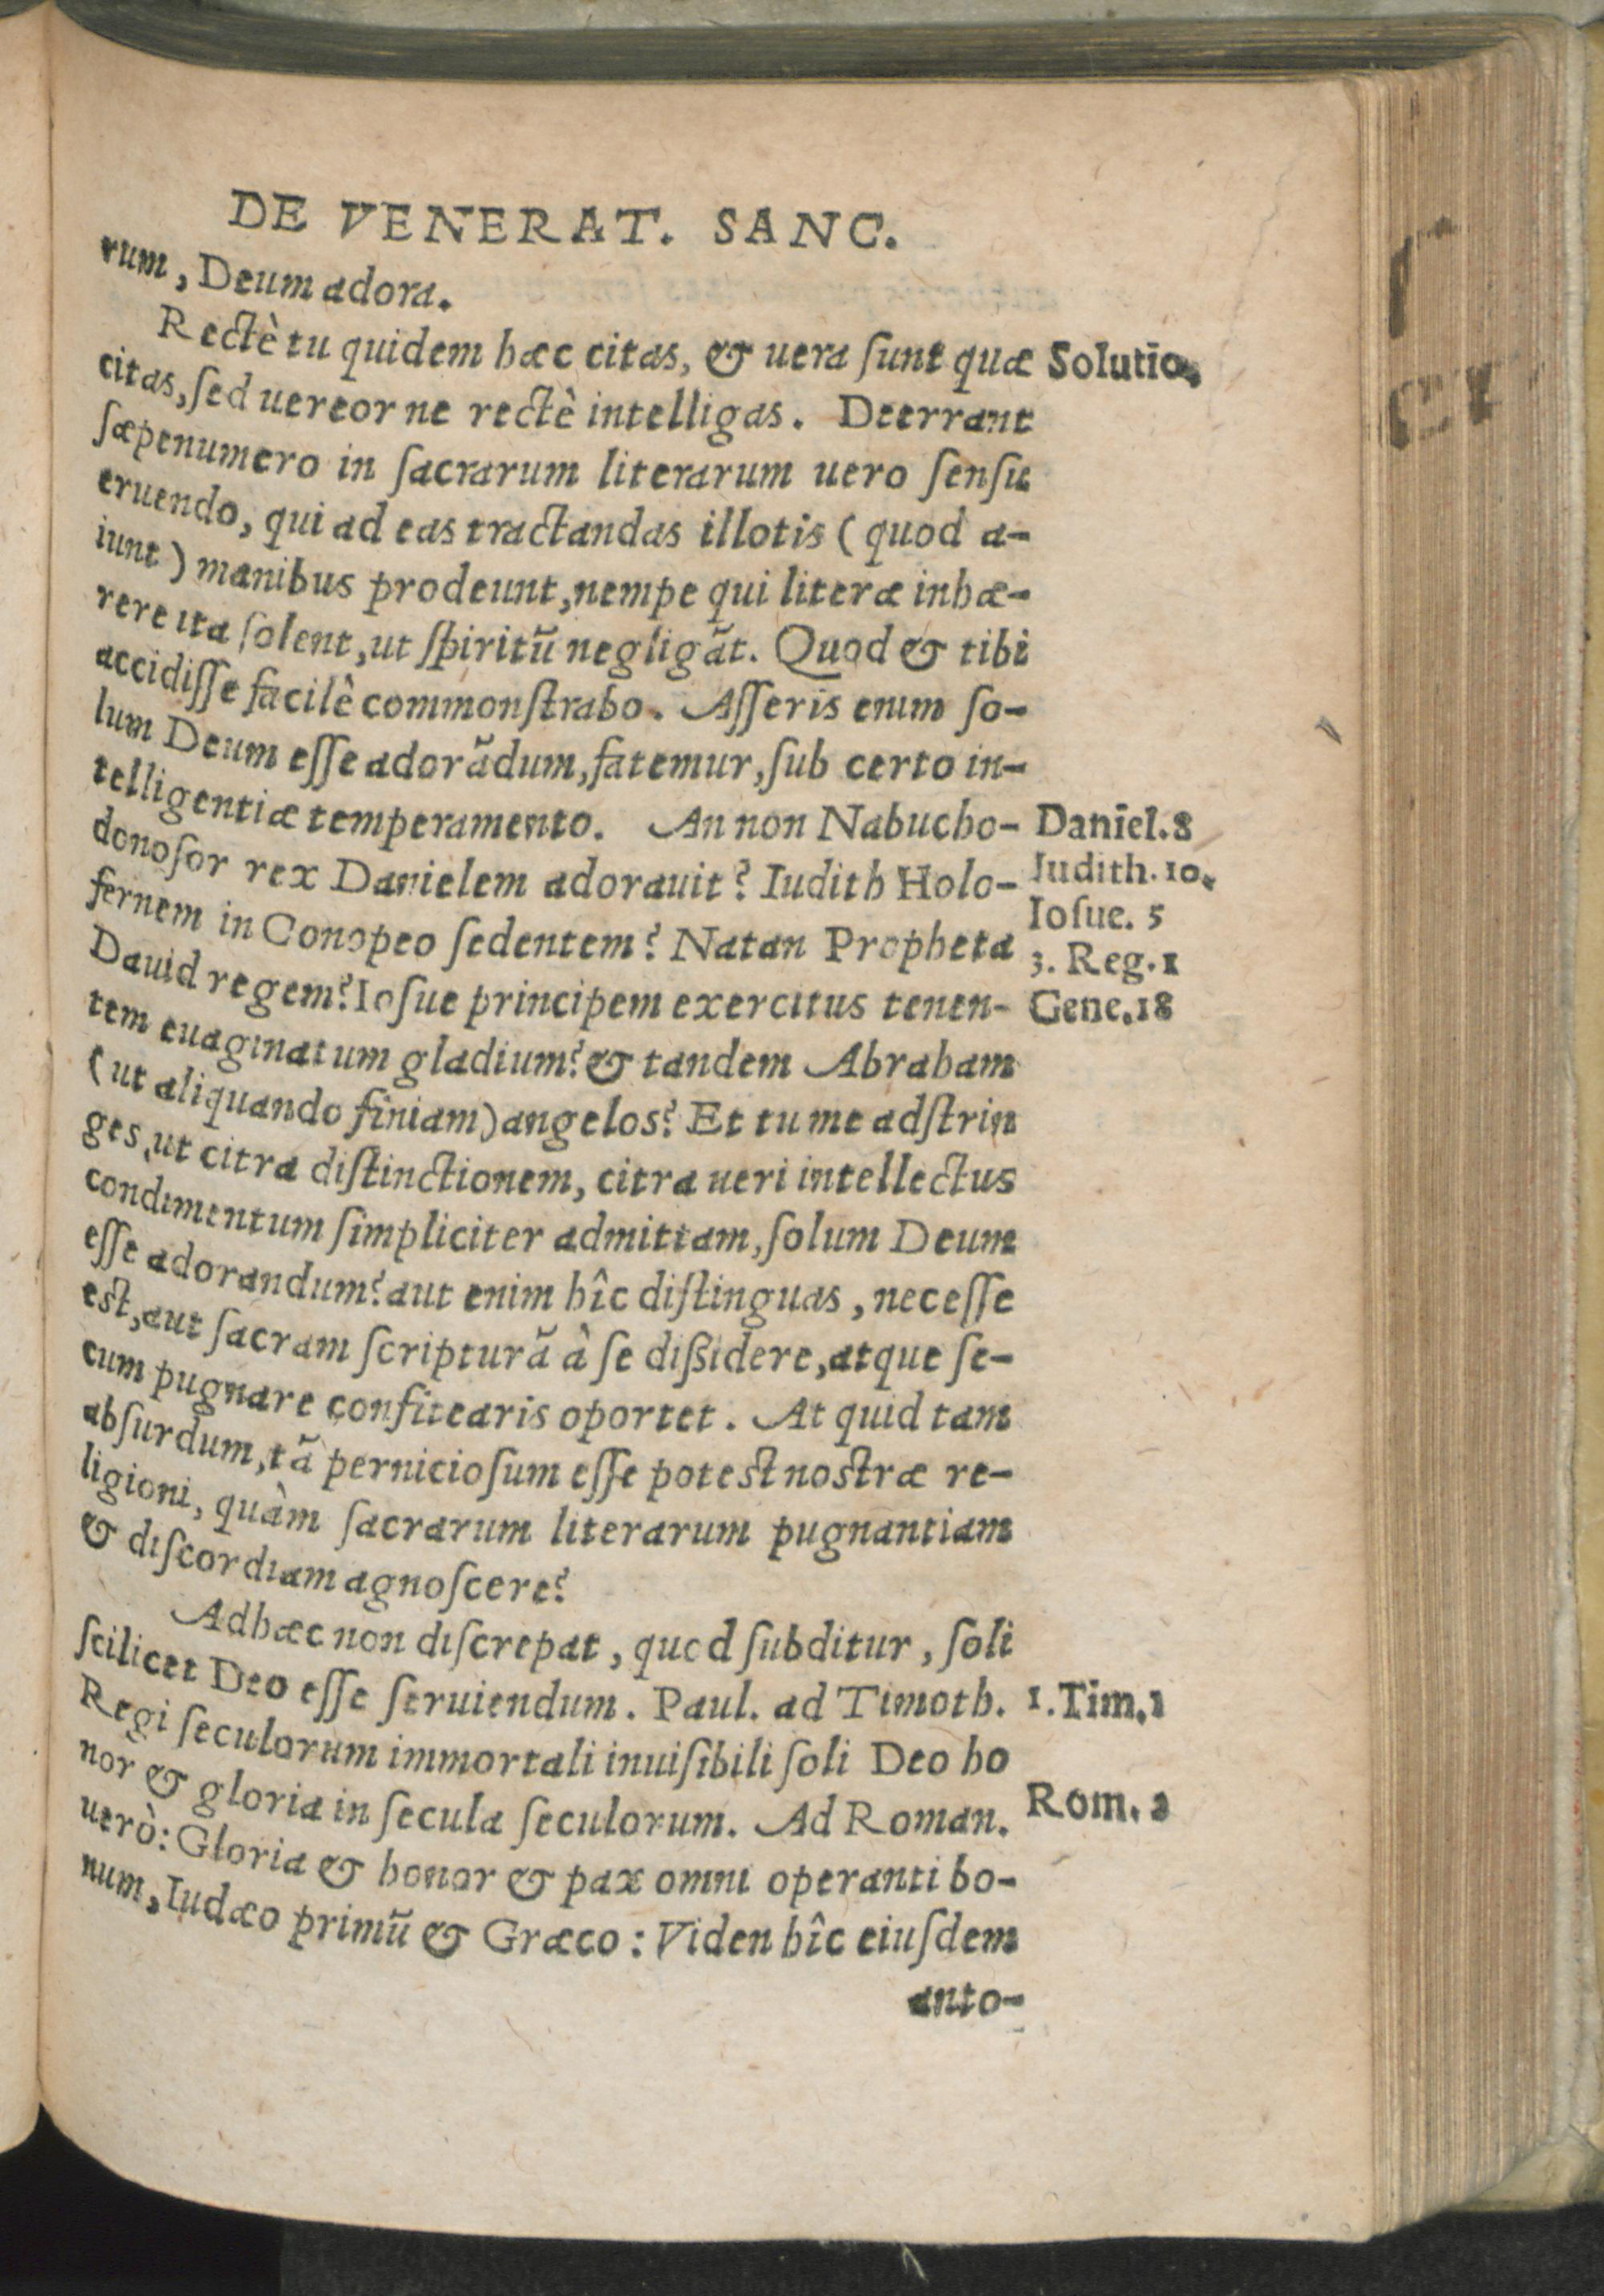 DE VENERAT. SANC.
rum, Deum adora.
Rectè tu quidem hæc citas, & uera ſunt quæ
Solutio.
citas, ſed uereor ne rectè intelligas. Deerrant
ſæpenumero in ſacrarum literarum uero ſenſu
eruendo, qui ad eas tractandas illotis (quod a-
iunt) manibus prodeunt, nempe qui literæ inhæ-
rere ita ſolent, ut ſpiritũ negligãt. Quod & tibi
accidiſſe facilê commonſtrabo. Aſſeris enim ſo-
lum Deum eſſe adorãdum, fatemur, ſub certo in-
telligentiæ temperamento. An non Nabucho-
Daniel. 8
donoſor rex Danielem adorauit? Iudith Holo-
Iudith. 10.
fernem in Conopeo ſedentem? Natan Propheta
Ioſue. 5
3. Reg. 1
Dauid regem? Ioſue principem exercitus tenen-
Gene. 18
tem euaginatum gladium? & tandem Abraham
(ut aliquando finiam) angelos? Et tu me adſtrin
ges, ut citra diſtinctionem, citra ueri intellectus
condimentum ſimpliciter admittam, ſolum Deum
eſſe adorandum? aut enim hîc diſtinguas, neceſſe
est, aut ſacram ſcripturã à ſe diſſidere, atque ſe-
cum pugnare confitearis oportet. At quid tam
abſurdum, tã pernicioſum eſſe potest nostræ re-
ligioni, quàm ſacrarum literarum pugnantiam
& diſcordiam agnoſcere?
Adhæc non diſcrepat, quod ſubditur, ſoli
ſcilicet Deo eſſe ſeruiendum. Paul. ad Timoth.
1. Tim. 1
Regi ſeculorum immortali inuiſibili ſoli Deo ho
nor & gloria in ſecula ſeculorum. Ad Roman.
Rom. 2
uerò: Gloria & honor & pax omni operanti bo-
num, Iudæo primũ & Græco: Viden hîc eiuſdem
anto-